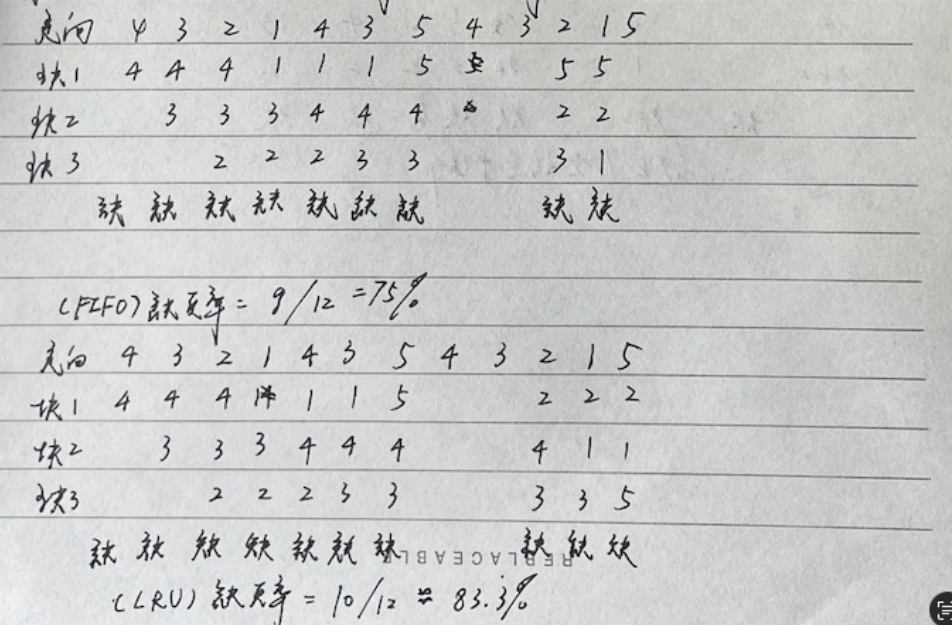 走向 4 3 2 1 4 3 5 4 3 2 1 5
块1 4 4 4 1 1 1 5 5 5
块2 3 3 3 4 4 4 2 2
块3 2 2 2 3 3 3 1
缺 缺 缺 缺 缺 缺 缺 缺 缺
(FIFO) 缺页率 = 9/12 = 75%
走向 4 3 2 1 4 3 5 4 3 2 1 5
块1 4 4 4 1 1 1 5 2 2 2
块2 3 3 3 4 4 4 4 1 1
块3 2 2 2 3 3 3 3 5
缺 缺 缺 缺 缺 缺 缺 缺 缺 缺
REPLACEABLE
(LRU) 缺页率 = 10/12 ≈ 83.3%